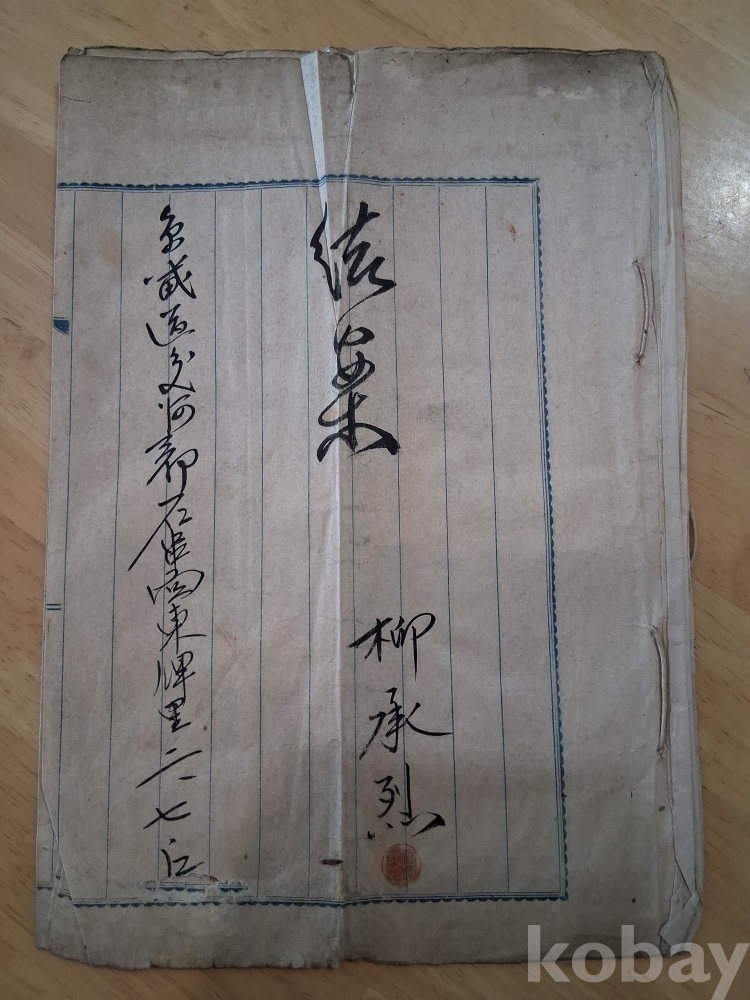 結案
柳承烈
京畿道交河郡石串面東牌里六七
kobay